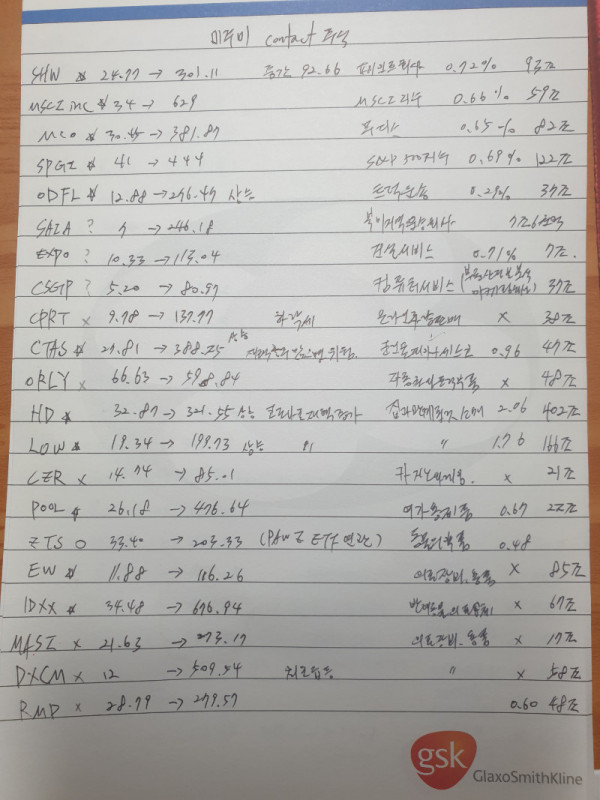 미주미 contact 주식
SHW ☆ 24.77 → 301.11 중간 92.66 페인트회사 0.72% 93조
MSCI inc ☆ 34 → 629 MSCI 지수 0.66% 59조
MCO ☆ 30.45 → 381.87 무디스 0.65% 82조
SPGI ☆ 41 → 444 S&P 500지수 0.69% 122조
ODFL ☆ 12.88 → 296.47 상승 트럭운송 0.29% 37조
SAIA ? → 246.18 북미지역운송회사 7조
EXPO ? 10.33 → 113.04 컨설서비스 0.71% 7조.
CSGP ? 5.20 → 80.97 컴퓨터서비스 37조
CPRT × 9.78 → 137.77 하락세 × 38조
CTAS ☆ 27.81 → 388.25 상승 0.96 47조
ORLY × 66.63 → 598.84 자동차 × 48조
HD ☆ 32.87 → 321.55 상승 2.06 402조
LOW ☆ 19.34 → 199.73 상승 〃 〃 1.76 166조
CZR × 14.74 → 85.01 카지노 × 21조
POOL ☆ 26.18 → 476.64 여가용품 0.67 22조
ZTS ○ 33.40 → 203.33 (PAWZ ETF 연관) 동물의약품 0.48
EW ☆ 11.88 → 116.26 의료장비.용품 × 85조
IDXX ☆ 34.48 → 676.94 반려동물 × 67조
MASI × 21.63 → 273.17 의료장비.용품 × 17조
DXCM × 12 → 509.54 최근급등 〃 × 58조
RMD × 28.79 → 279.57 0.60 48조
gsk GlaxoSmithKline